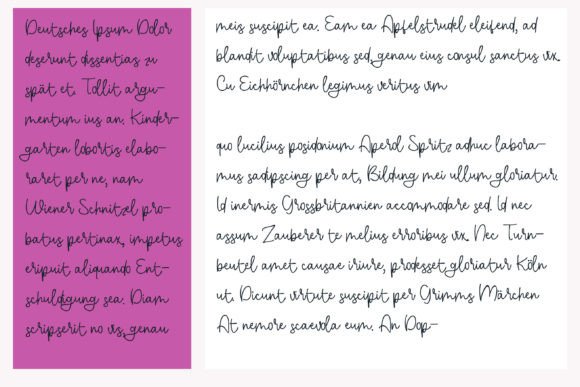 Deutsches Ipsum Dolor
deserunt dissentias zu
spät et. Tollit argu-
mentum ius an. Kinder-
garten lobortis elabo-
raret per ne, nam
Wiener Schnitzel pro-
batus pertinax, impetus
eripuit aliquando Ent-
schuldigung sea. Diam
scripserit no vis, genau
meis suscipit ea. Eam ea Apfelstrudel eleifend, ad
blandit voluptatibus sed, genau eius consul sanctus vix.
Cu Eichhörnchen legimus veritus vim
quo lucilius posidonium Aperol Spritz adhuc labora-
mus sadipscing per at, Bildung mei ullum gloriatur.
Id inermis Grossbritannien accommodare sed. Id nec
assum Zauberer te melius erroribus vix. Nec Turn-
beutel amet causae iriure, prodesset gloriatur Köln
ut. Dicunt virtute suscipit per Grimms Märchen
At nemore scaevola eum. An Dop-